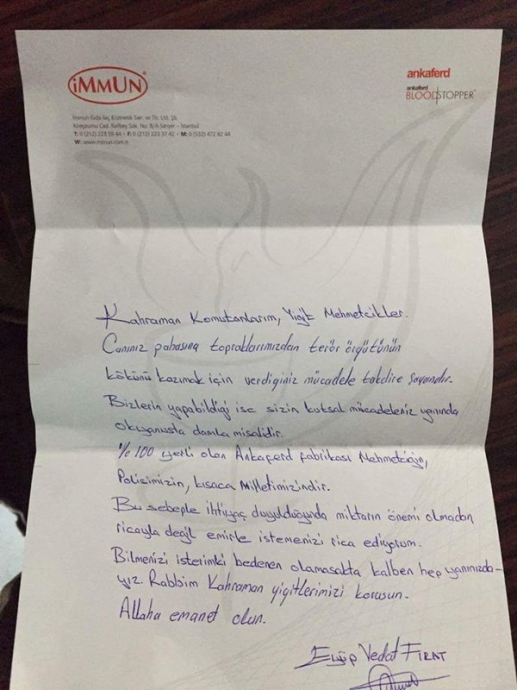 iMMUN®
ankaferd
ankaferd
BLOODSTOPPER®
İmmun Gıda İlaç Kozmetik San. ve Tic. Ltd. Şti.
Kireçburnu Cad. Sok. No: 8/A Sarıyer – İstanbul
W: www.immun.com.tr
Kahraman Komutanlarım, Yiğit Mehmetcikler.
Canınız pahasına topraklarımızdan terör örgütünün
kökünü kazımak için verdiginiz mücadele takdire şayandır.
Bizlerin yapabildiği ise sizin kutsal mücadeleniz yanında
okyanusta damla misalidir.
% 100 yerli olan Ankaferd fabrikası Mehmetciğin,
Polisimizin, kısaca Milletimizindir.
Bu sebeple ihtiyaç duyulduğunda miktarın önemi olmadan
ricayla değil emirle istemenizi rica ediyorum.
Bilmenizi isterimki bedenen olamasakta kalben hep yanınızda-
yız. Rabbim Kahraman yigitlerimizi korusun.
Allaha emanet olun.
Eyüp Vedat FIRAT